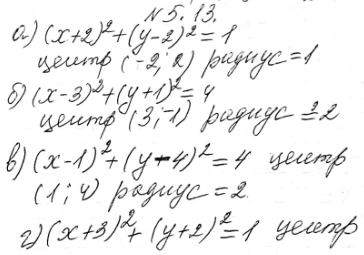 №5.13.
а) (x+2)²+(y-2)²=1
центр (-2; 2) радиус=1
б) (x-3)²+(y+1)²=4
центр (3;-1) радиус=2
в) (x-1)²+(y-4)²=4 центр
(1; 4) радиус=2
г) (x+3)²+(y+2)²=1 центр